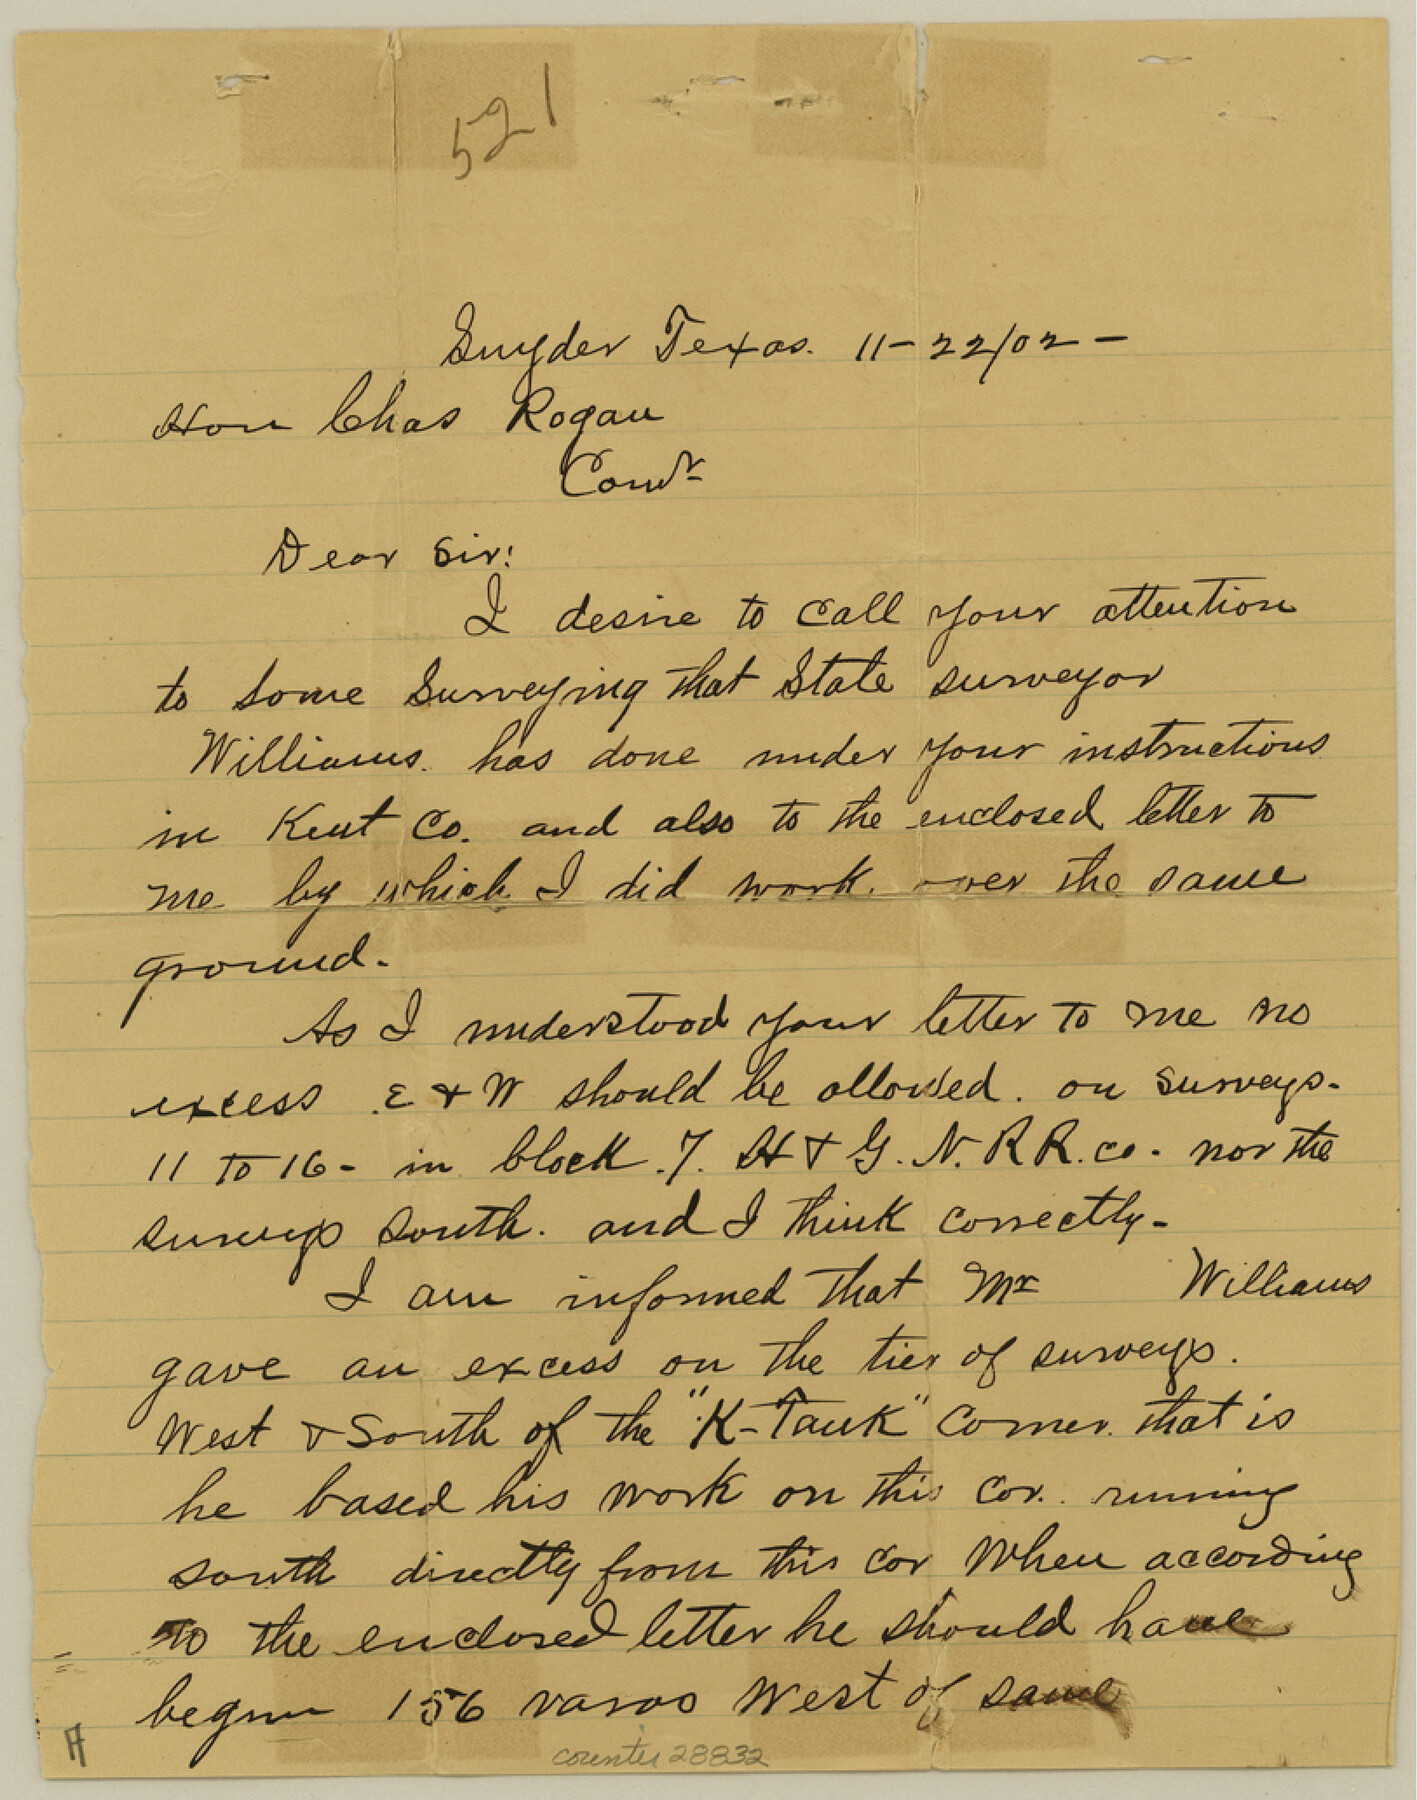 521
Snyder Texas. 11-22/02-
Hon Chas Rogan
Comr
Dear Sir:
I desire to call your attention
to some surveying that State surveyor
Williams. has done under your instructions
in Kent Co. and also to the enclosed letter to
me by which I did work. over the same
ground.
As I understood your letter to me no
excess E & W should be allowed. on surveys-
11 to 16- in block .7. H & G. N. R R. co. nor the
surveys south. and I think correctly-
I am informed that Mr Williams
gave an excess on the tier of surveys.
West & South of the "K-Tank" Corner. that is
he based his work on this cor. running
south directly from this cor when according
to the enclosed letter he should have
begun 156 varas west of same
counter 28832
A